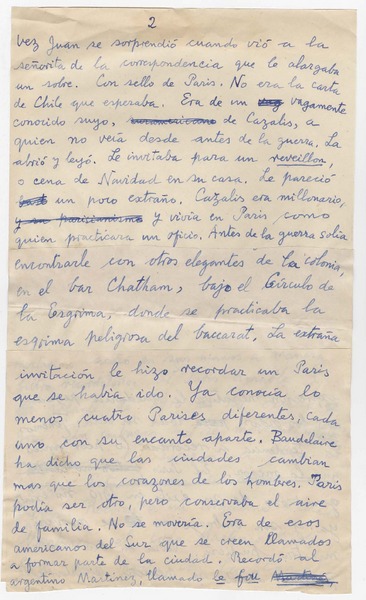 2
vez Juan se sorprendió cuando vió a la
señorita de la correspondencia que le alargaba
un sobre. Con sello de Paris. No era la carta
de Chile que esperaba. Era de un vagamente
conocido suyo, de Cazalis, a
quien no veía desde antes de la guerra. La
abrió y leyó. Le invitaba para un reveillon,
o cena de Navidad en su casa. Le pareció
un poco extraño. Cazalis era millonario,
y vivia en Paris como
quien practicara un oficio. Antes de la guerra solia
encontrarle con otros elegantes de la colonia,
en el bar Chatham, bajo el Círculo de
la Esgrima, donde se practicaba la
esgrima peligrosa del baccarat. La extraña
invitación le hizo recordar un Paris
que se había ido. Ya conocía lo
menos cuatro Parises diferentes, cada
uno con su encanto aparte. Baudelaire
ha dicho que las ciudades cambian
mas que los corazones de los hombres. Paris
podía ser otro, pero conservaba el aire
de familia. No se movería. Era de esos
americanos del Sur que se creen llamados
a formar parte de la ciudad. Recordó al
argentino Martinez, llamado le fou